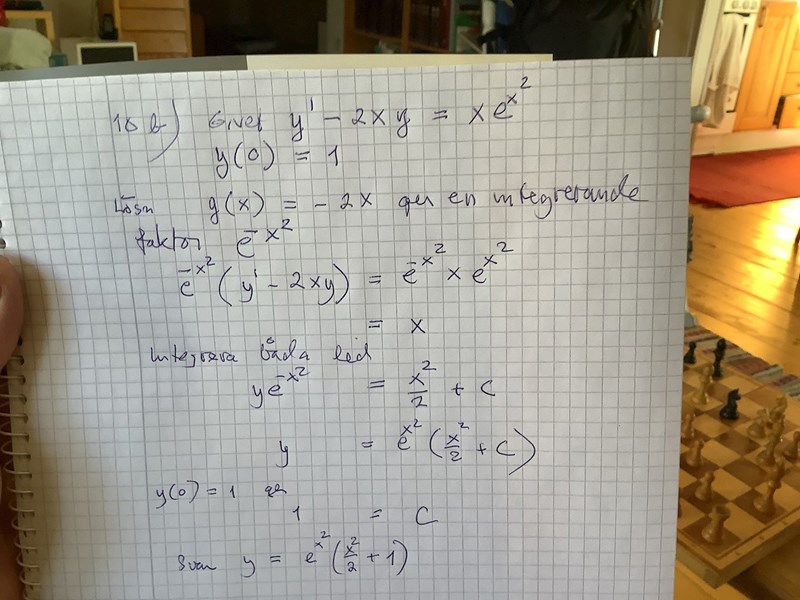 10 b) Givet y' - 2xy = xe^x²
y(0) = 1
Lösn g(x) = -2x ger en integrerande
faktor e^-x²
e^-x² (y' - 2xy) = e^-x² x e^x²
= x
Integrera båda led
ye^-x² = x²/2 + C
y = e^x² (x²/2 + C)
y(0) = 1 ger
1 = C
Svar y = e^x² (x²/2 + 1)